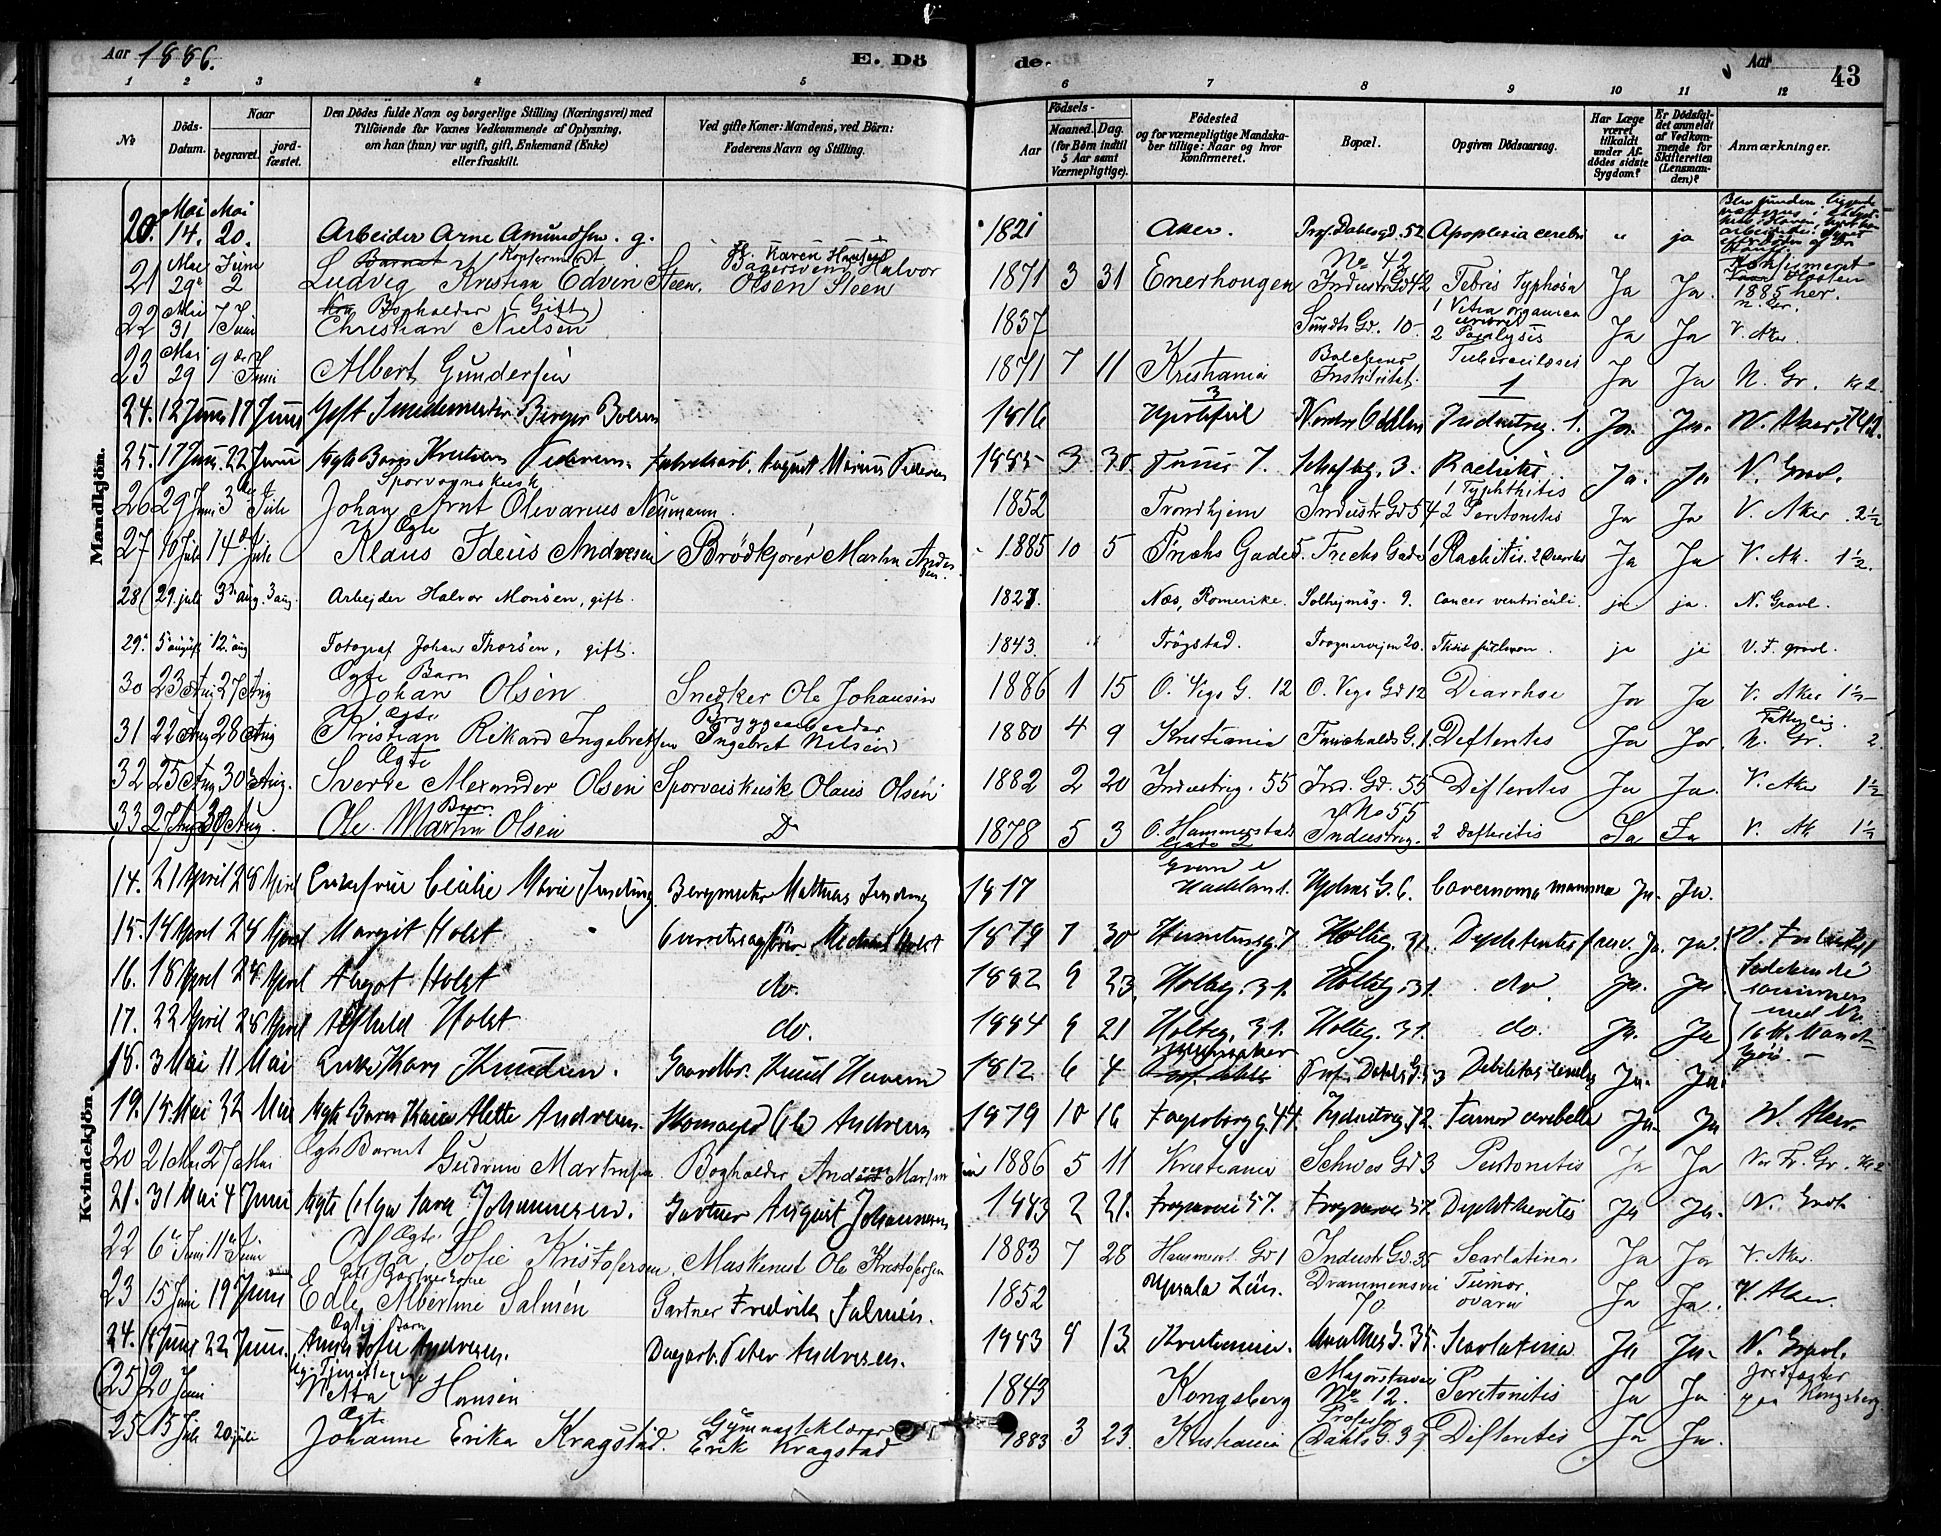 Aar 1886. E. Dö de. Aar 43
1 2 3 4 5 6 7 8 9 10 11 12
No Döds-Datum. Naar begravet. jordfæstet. Den Dödes fulde Navn og borgerlige Stilling (Næringsvei) med Tilföiende for Voxnes Vedkommende af Oplysning, om han (hun) var ugift, gift, Enkemand (Enke) eller fraskilt. Ved gifte Koner: Mandens, ved Börn: Faderens Navn og Stilling. Aar Födsels- Maaned. Dag. (for Börn indtil 5 Aar samt Værnepligtige). Födested og for værnepligtige Mandskaber tillige: Naar og hvor konfirmeret. Bopæl. Opgiven Dödsaarsag. Har Læge været tilkaldt under Afdödes sidste Sygdom? Er Dödsfaldet anmeldt af Vedkommende for Skifteretten (Lensmanden)? Anmærkninger.
Mandkjön.
20. Mai 14. Mai 20. Arbeider Arne Amundsen. g. 1821 Aker. Prof. Dahlsgd. 52 Apoplexia cerebri " ja
21 Mai 29 Juni 2 Ludvig Kristian Edvin Steen. Bagersvend Halvor Olsen Steen 1871 3 31 Enerhougen No 42 Industr Gd 42 Febris Typhosa Ja Ja. 1885 her.
22 Mai 31 7 Juni Bogholder (Gift) Christian Nielsen 1837 Sundts Gd. 10 2 Paralysis Ja Ja V. Aker
23 Mai 29 9de Juni Albert Gundersen 1871 7 11 Kristiania Balchens Institut. Tuberculosis Ja Ja N. Gr. Kr 2
24. 12 Juni 17 Juni Gift Smedemester Birger 1816 Industrig. 1. Ja. Ja. V. Aker.
25. 17 Juni. 22 Juni Ægte Barn Kristian Pedersen. Fabrikarb. August Marius Pedersen 1885 3 30 7. Schafteg. 3. Rachitis. Ja. Ja N. Gravl.
26 29 Juni 3die Juli Sporvognskusk Johan Arnt Olevarius Neumann. 1852 Trondhjem Industr Gd 54 1 Typhlitis 2 Peritonitis Ja Ja V. Aker 2½
27 10 Juli 14de Juli Ægte Klaus Ideus Andresen Brödkjörer Martin Andersen. 1885 10 5 Frichs Gade 5. Frichs Gade Rachitis. Ja Ja V. Ak. 1½.
28 29. juli 3. aug. 3 aug. Arbejder Halvor Monsen, gift. 1827. Næs, Romerike. Solhejmsg. 9. Cancer ventriculi. ja. ja. N. Gravl.
29. 5 august 12. aug Fotograf Johan Thorsen, gift. 1843. Trögstad. Frognervejen 20. Ftisis pulmon. ja ja V. F. gravl.
30 23 Aug 27 Aug Ægte Barn Johan Olsen Snedker Ole Johansen 1886 1 15 O. Vogs G. 12 O. Vogs Gd 12 Diarrhoe Ja Ja V. Aker 1½
31 22 Aug 28 Aug Ægte Kristian Rikard Ingebretsen Bryggearbeider Ingebret Nilsen 1880 4 9 Kristiania G. 1. Difteritis Ja Ja Fattiglig. N. Gr. 2.
32 25 Aug 30 Aug. Ægte Sverre Alexander Olsen Sporveiskusk Olaus Olsen 1882 2 20 Industrig. 55 Ind. Gd. 55 Difteritis Ja Ja. V. Aker 1½
33 27 Aug 30 Aug. Barn Ole Martin Olsen Do 1878 5 3 O. Hammerstads Gade 2 No 55 Industrig. 2 Difteritis Ja Ja V. Ak 1½
Kvindekjön.
14. 21 April 28 April Enkefrue Cecilie Marie Sinding. Bergmester Matthias Sinding 1817 Gran i Hadeland. G. 6. mamma Ja. Ja.
15. 18 April 28 April Margit Holst Overretssagförer Michael Holst 1879 7 30 7 Holteg. 31. Diphteritis Ja. Ja. V.
16. 18 April 28 April Aagot Holst do. 1882 9 23. Holteg. 31. Holteg. 31. do. Ja. Ja.
17. 22 April 28 April Alfhild Holst do. 1884 9 21 Holteg. 31. Holteg. 31. do. Ja. Ja
18. 3 Mai 11 Mai Enke Kari Knudsen. Gaardbr. Knud 1812 6 4 Prof. Dahls G. Debilitas senilis Ja. Ja.
19. 15 Mai 22 Mai Ægte Barn Karen Alette Andresen. Skomager Ole Andresen 1879 10 16 Fagerborgg. 44. Industrig. 42. Tumor cerebelli Ja. Ja V. Aker.
20 21 Mai 27 Mai Ægte Barnet Gudrun Martinsen Bogholder Anders Martinsen 1886 5 11 Kristiania Schives Gd 3 Peritonitis Ja Ja Vor Fr. Gr. Kr 2
21. 31 Mai 4 Juni Ægte Olga Sara Johannesen. Gartner August Johannesen 1883 2 21. Frognervei 57. Frognervei 57. Diphtheritis Ja Ja. N. Gravl.
22 6te Juni 11te Juni Ægte Olga Sofie Kristofersen, Maskenist Ole Kristofersen 1883 7 28 Hammerst. Gd 1 Industr Gd. 35 Scarlatina. Ja Ja V. Aker.
23 15 Juni 19 Juni Gift Gartnerkone Edle Albertine Salmén Gartner Fredrik Salmén. 1852 Upsala Län. Drammensvei 70 Tumor ovarii Ja Ja. V. Aker.
24. 18 Juni 22 Juni. Ægte Barn Anna Sofie Andresen. Dagarb. Peter Andresen. 1883 8 13 Kristiania. G. 35. Scarlatina Ja Ja. N. Gravl.
(25) 20 Juni Ug. Tjenestepige Netta Hansen 1843 Kongsberg Majorstuvei No 12. Peritonitis Ja Ja Jordfæstet paa Kongsberg
25 15 Juli 20 juli Ægte Johanne Erika Kragstad. Gymnastiklærer Erik Kragstad 1883 3 23. Kristiania Professor Dahls G. 37 Difteritis Ja Ja.